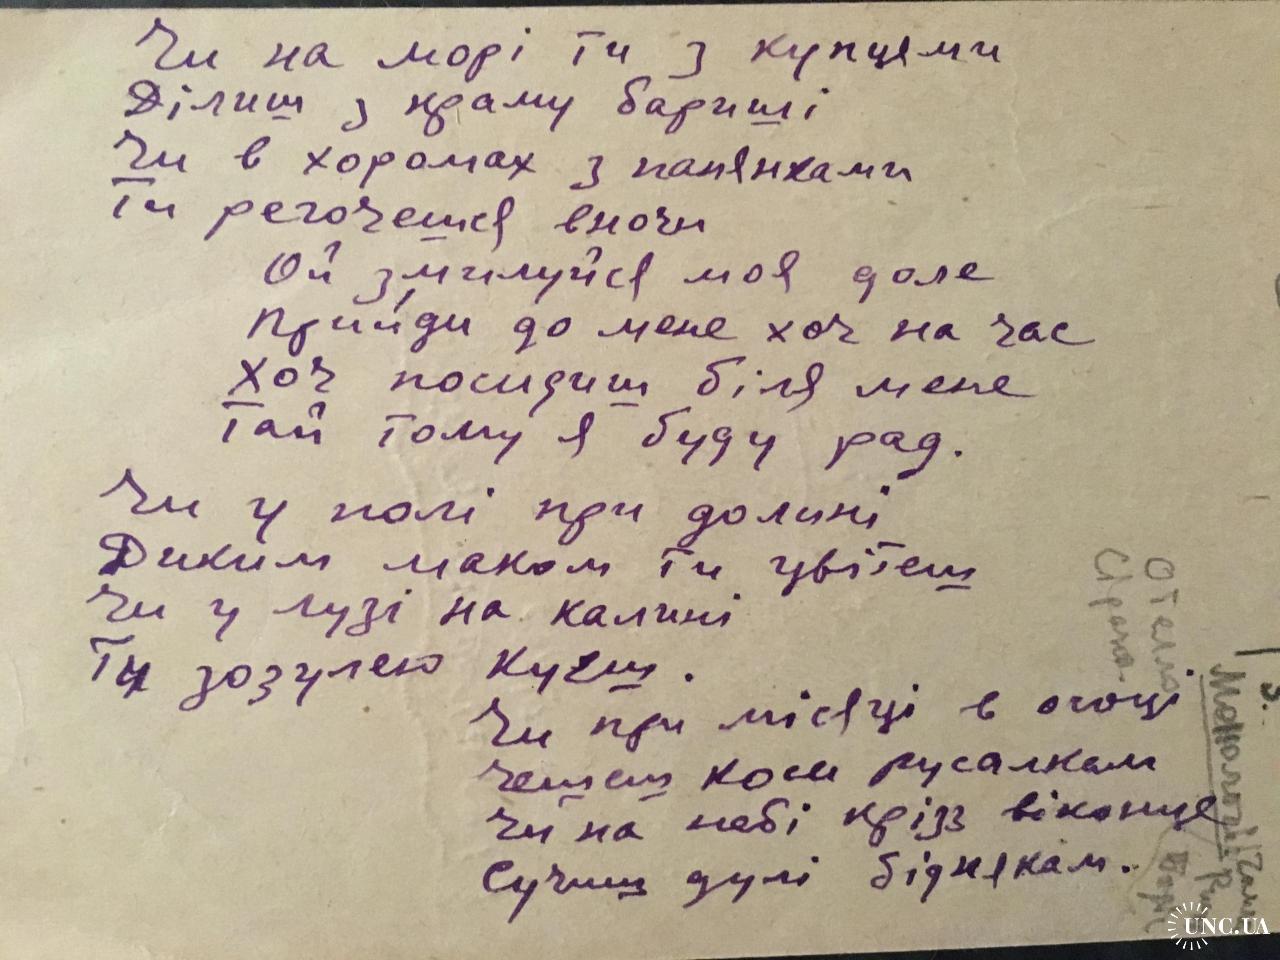 Чи на морі ти з купцями
Ділиш з краму бариші
Чи в хоромах з панянками
Ти регочешся вночи
Ой змилуйся моя доле
Прийди до мене хоч на час
Хоч посидиш біля мене
Тай тому я буду рад.
Чи у полі при долині
Диким маком ти цвітеш
Чи у лузі на калині
Ти зозулею куеш.
Чи при місяці в отоці
Чешеш коси русалкам
Чи на небі крізз віконце
Сучиш дулі біднякам.
Отелло
Сірано
3.
Монологи:
UNC.UA